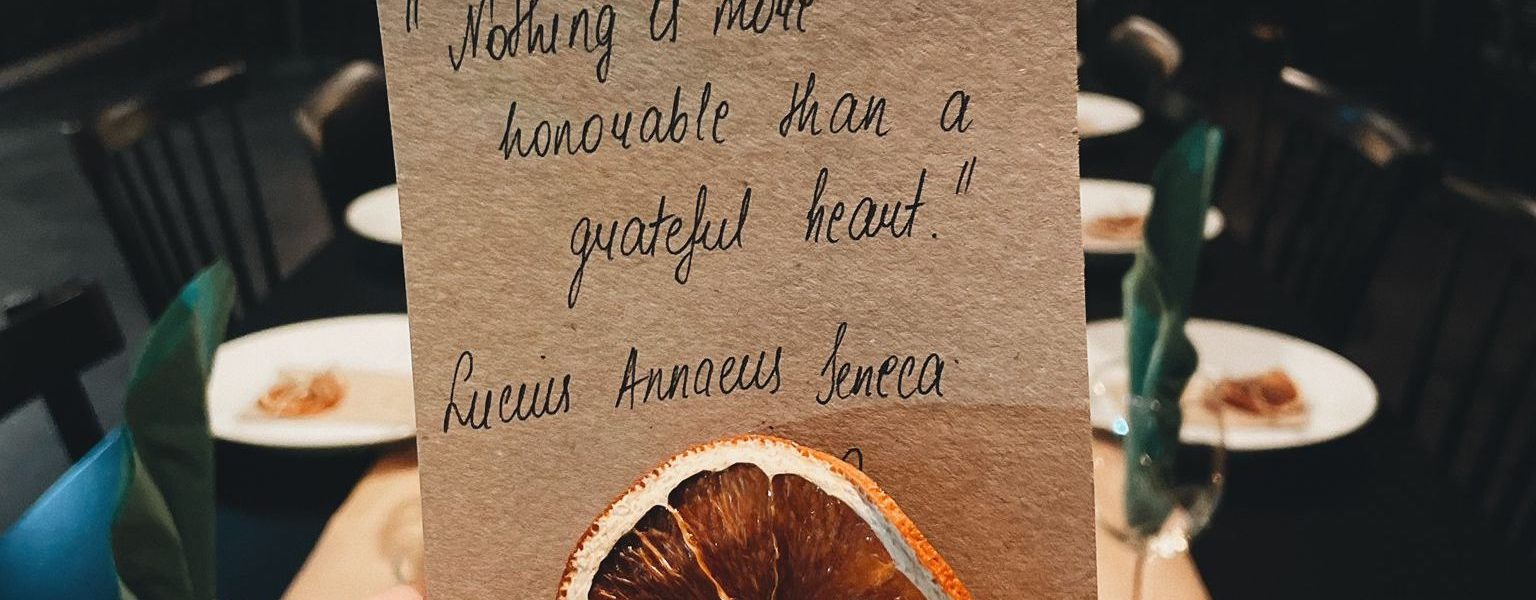 " Nothing is more
honorable than a
grateful heart."
Lucius Annaeus Seneca